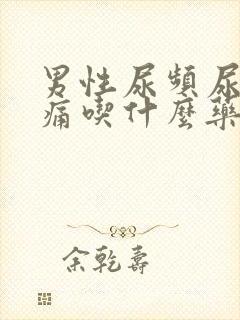 男性尿頻尿
痛喫什麼藥
余乾壽